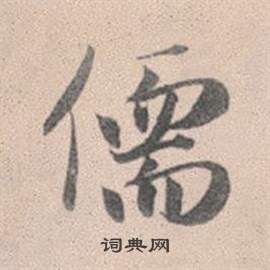 儒
词典网